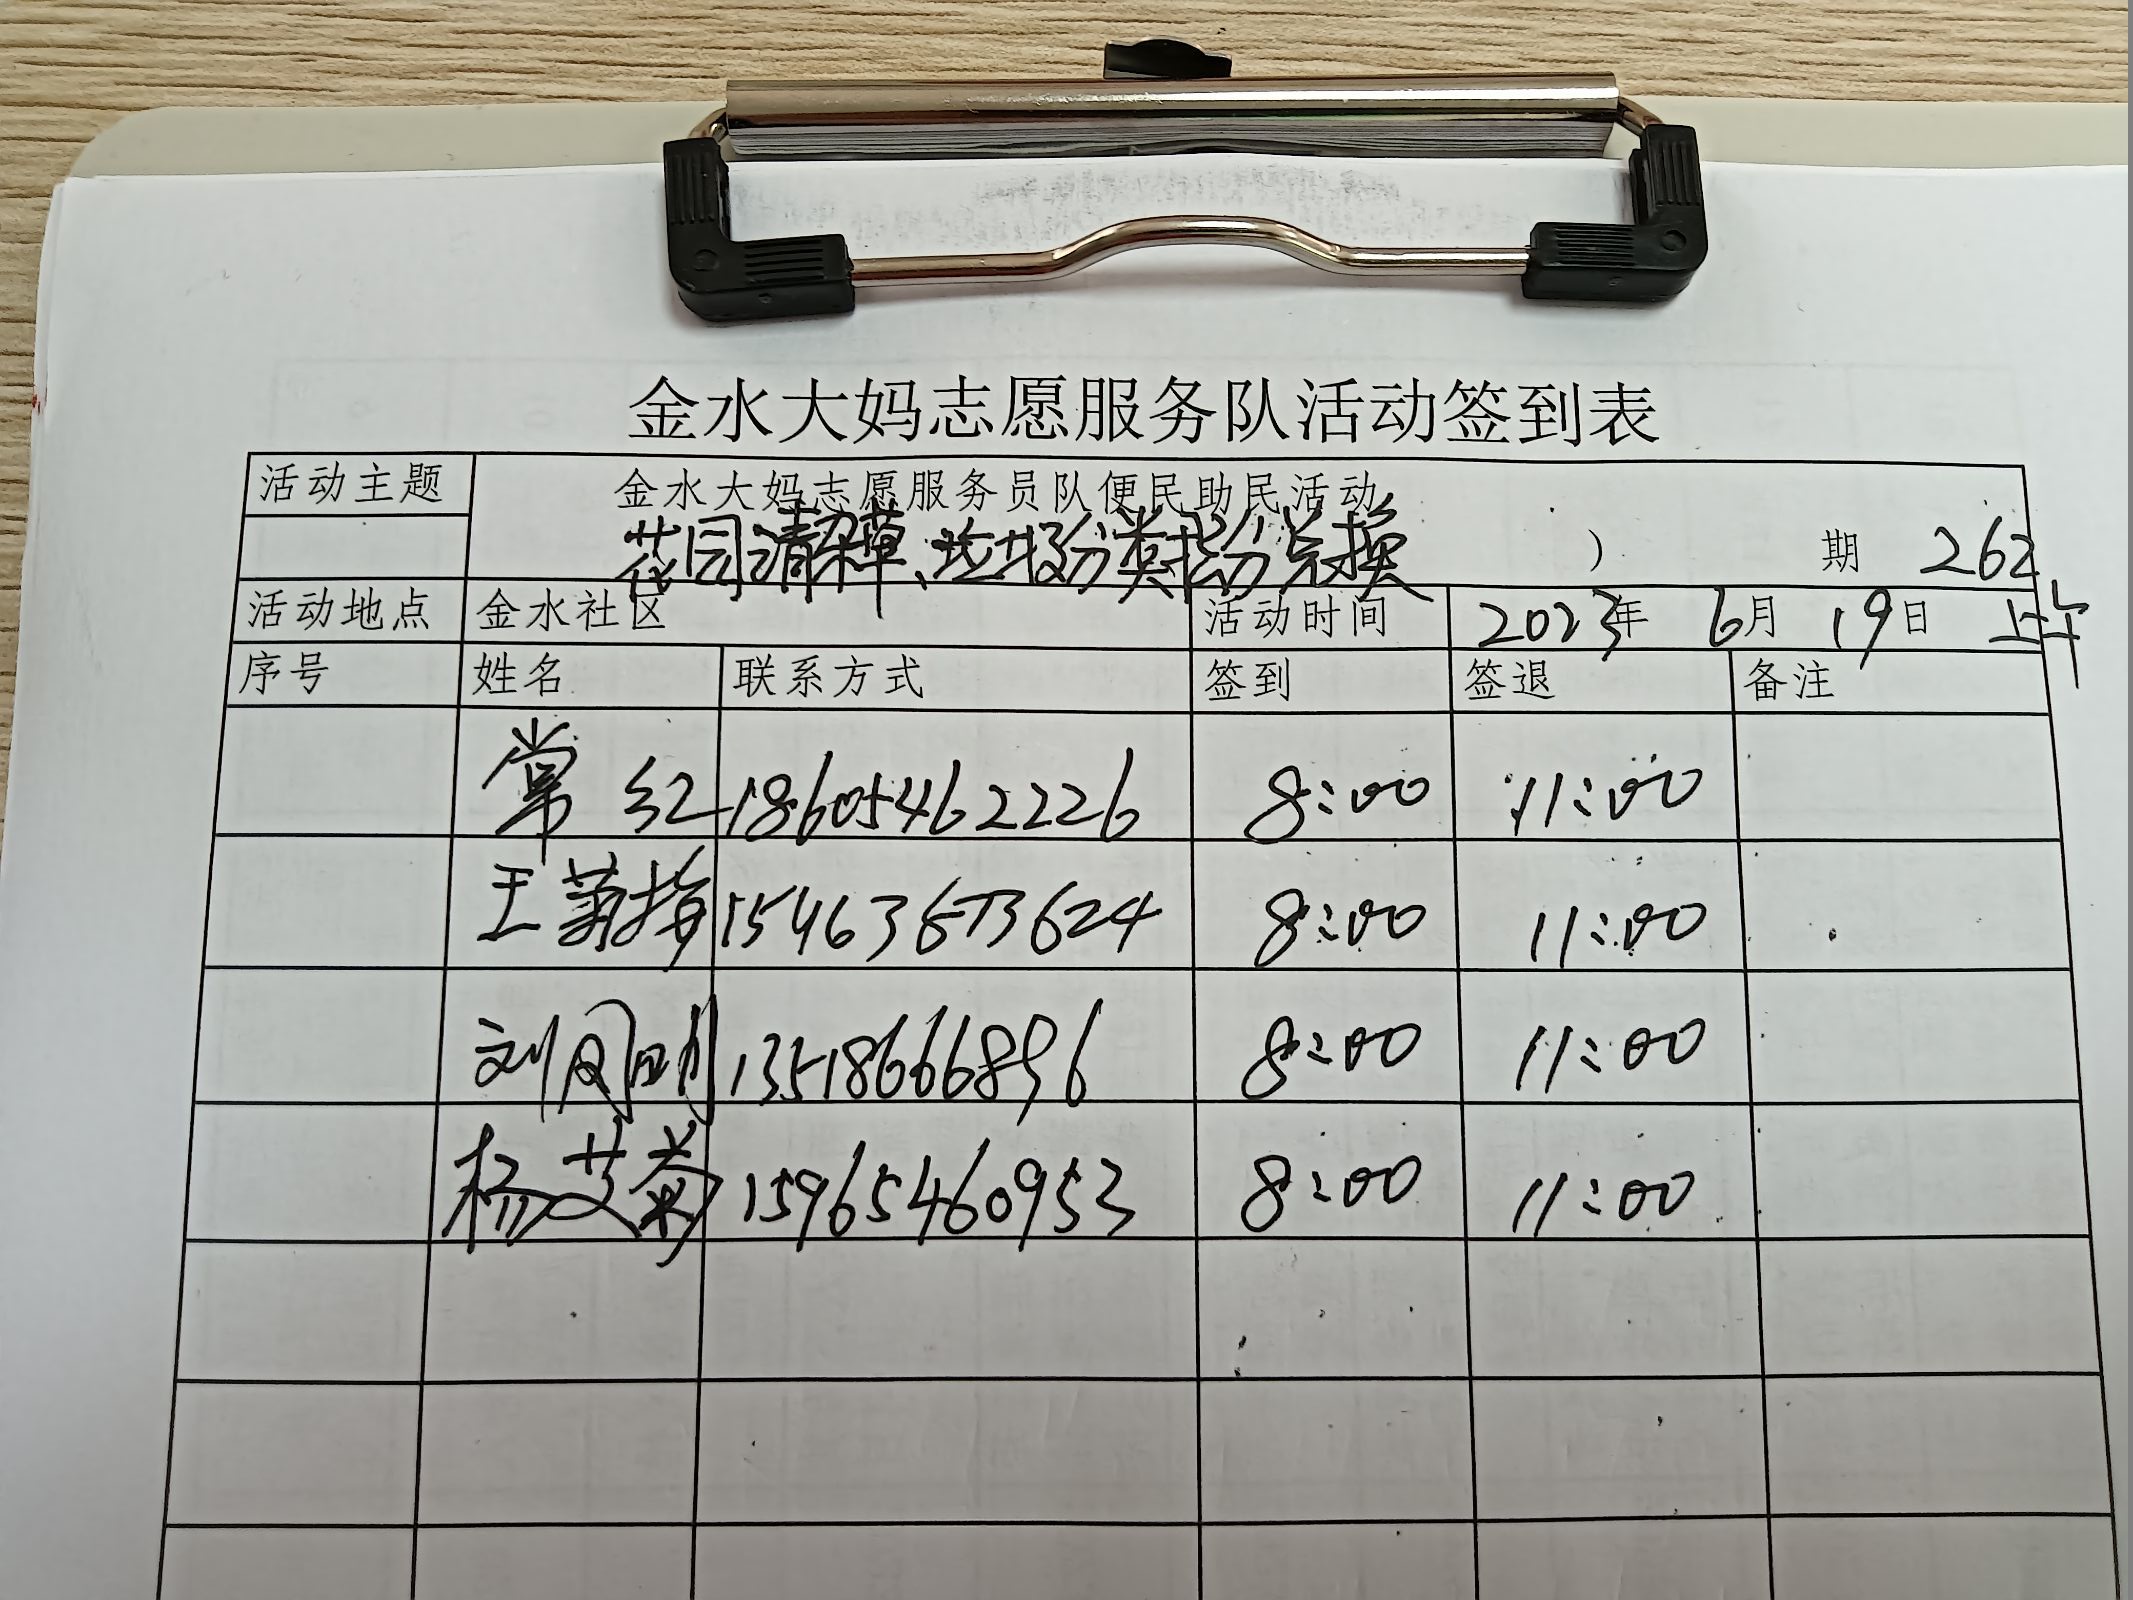 金水大妈志愿服务队活动签到表
活动主题 金水大妈志愿服务员队便民助民活动
花园清杂草、垃圾分类积分兑换 ） 期 262
活动地点 金水社区 活动时间 2023年 6月 19日 上午
序号 姓名 联系方式 签到 签退 备注
常红 18605462226 8:00 11:00
王菊梅 15463673624 8:00 11:00
刘同明 13518666896 8:00 11:00
杨艾菊 15965460953 8:00 11:00